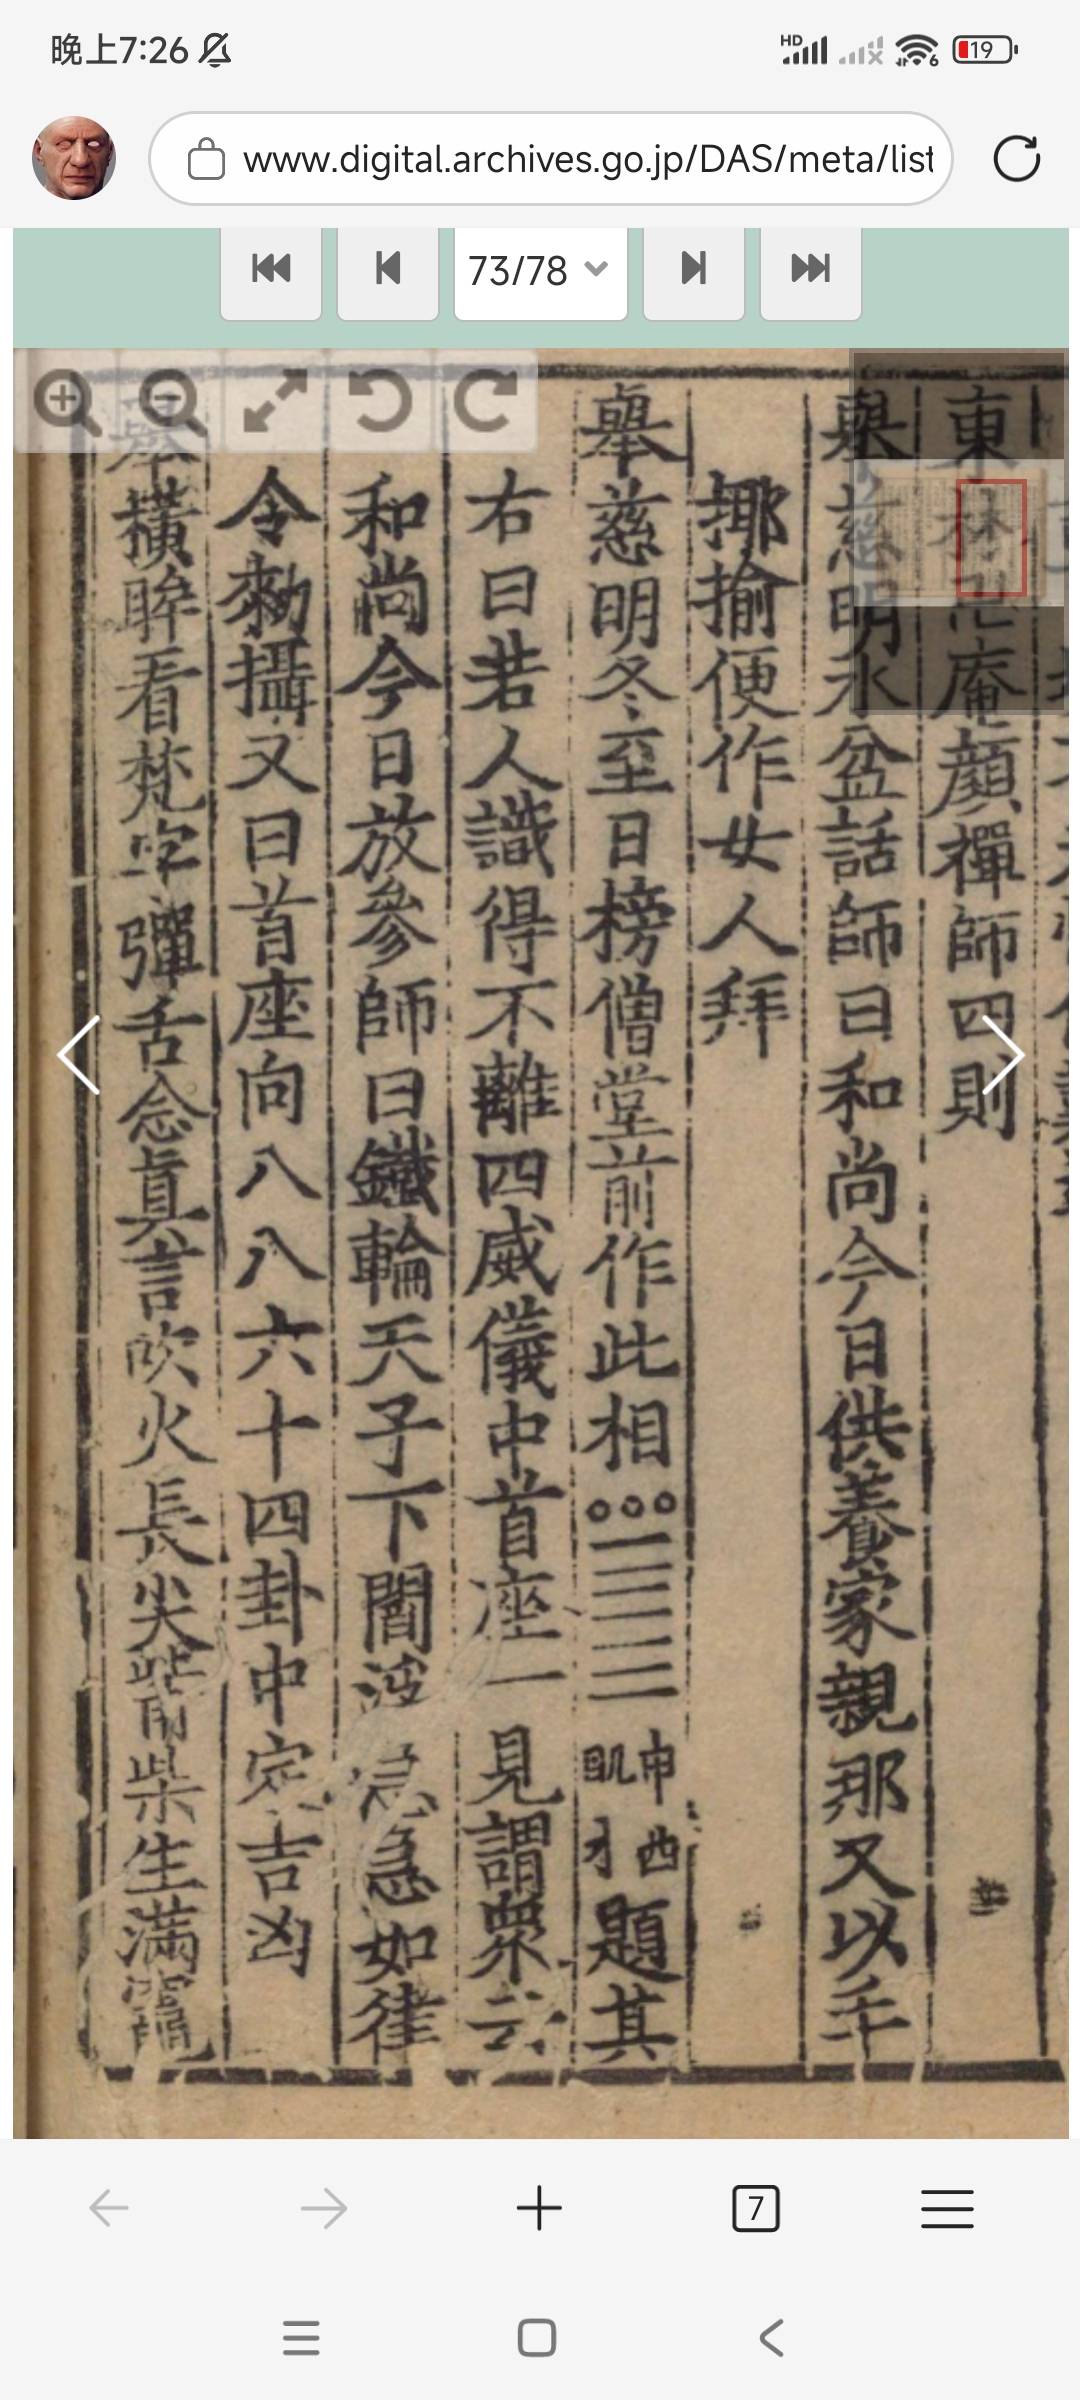 晚上7:26
HD
6
19
www.digital.archives.go.jp/DAS/meta/list
73/78
東林卍庵顏禪師四則
舉慈明水盆話師曰和尚今日供養家親那又以手
揶揄便作女人拜
舉慈明冬至日榜僧堂前作此相
題其
右曰若人識得不離四威儀中首座一見謂衆云
和尚今日放參師曰鐵輪天子下閻浮急急如律
令勑攝又曰首座向八八六十四卦中定吉凶
舉橫眸看梵字彈舌念眞言吹火長尖觜柴生滿竈
7